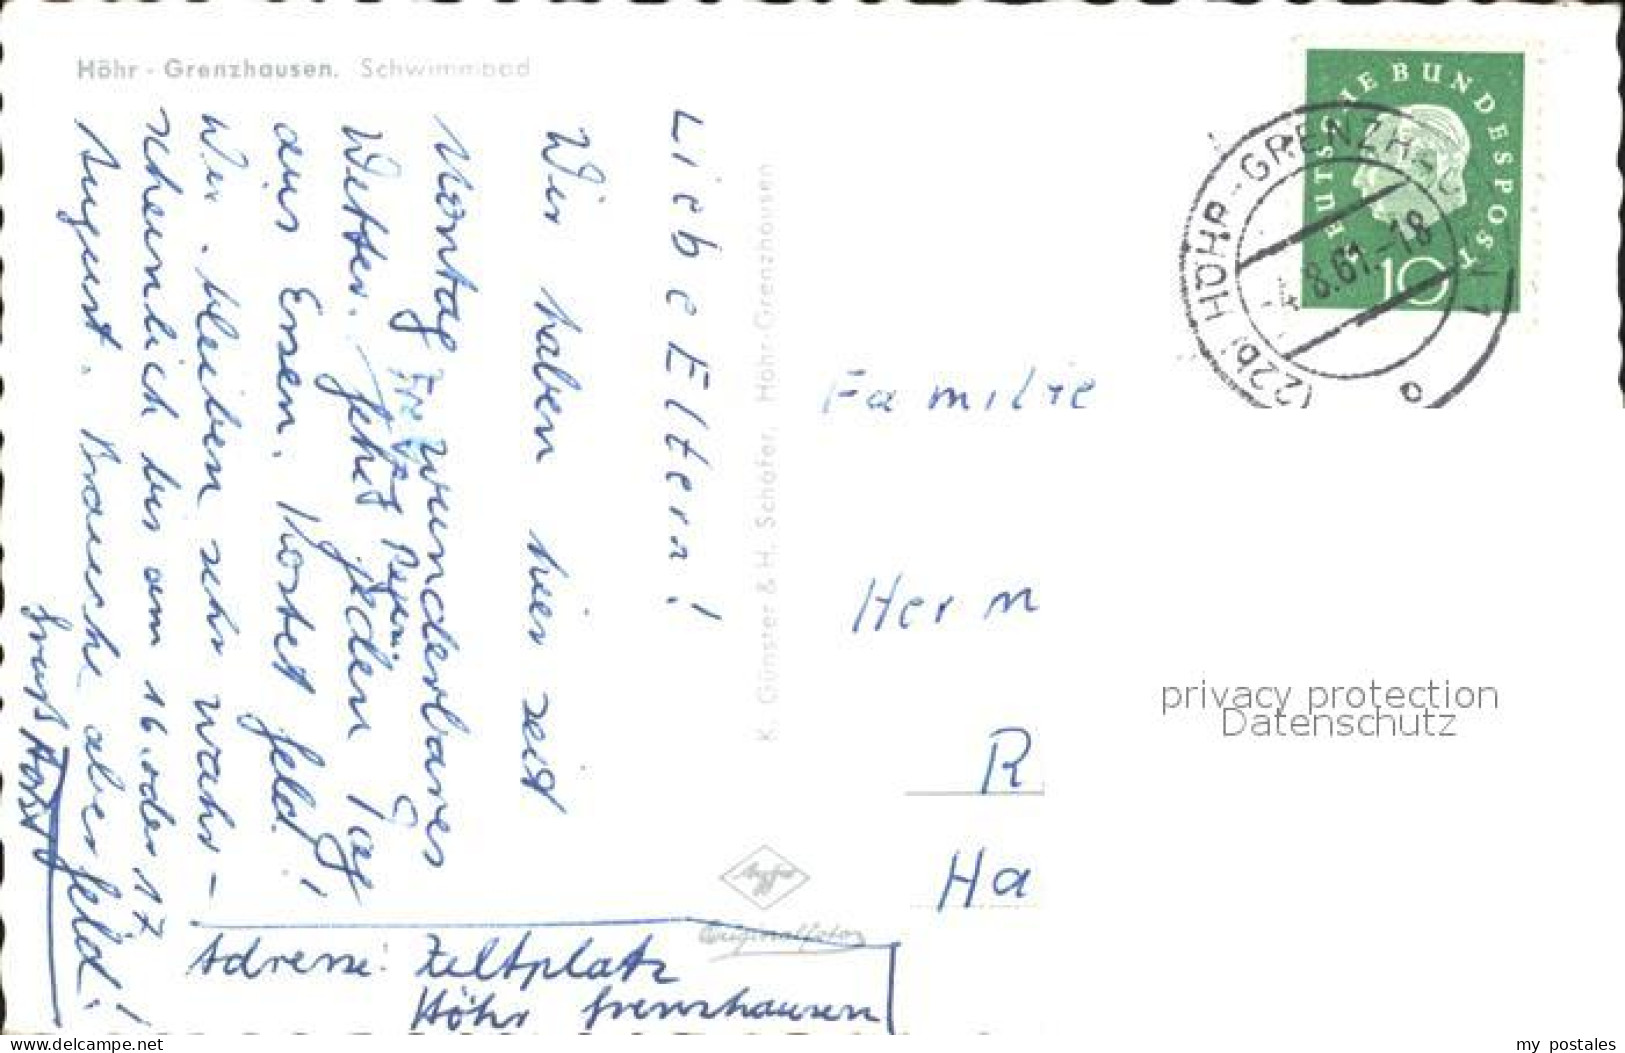 Höhr-Grenzhausen. Schwimmbad
Liebe Eltern!
Wir haben hier seit
Montag wunderbares
Freitag Regen
Wetter. Gehet jeden Tag
aus Essen. Kostet Geld!
Wir bleiben sehr wahr-
scheinlich bis am 16. oder 17
August. Brauche aber Geld!
Gruß Horst
Adresse: Zeltplatz
Höhr Grenzhausen
K. Günster & H. Schäfer, Höhr-Grenzhausen
Agfa
Originalfoto
DEUTSCHE BUNDESPOST
10
(22b) HÖHR-GRENZH
8.61.-18
a
Familie
Herm
R
Ha
privacy protection
Datenschutz
www.ansichtskartenversand.com
my postales